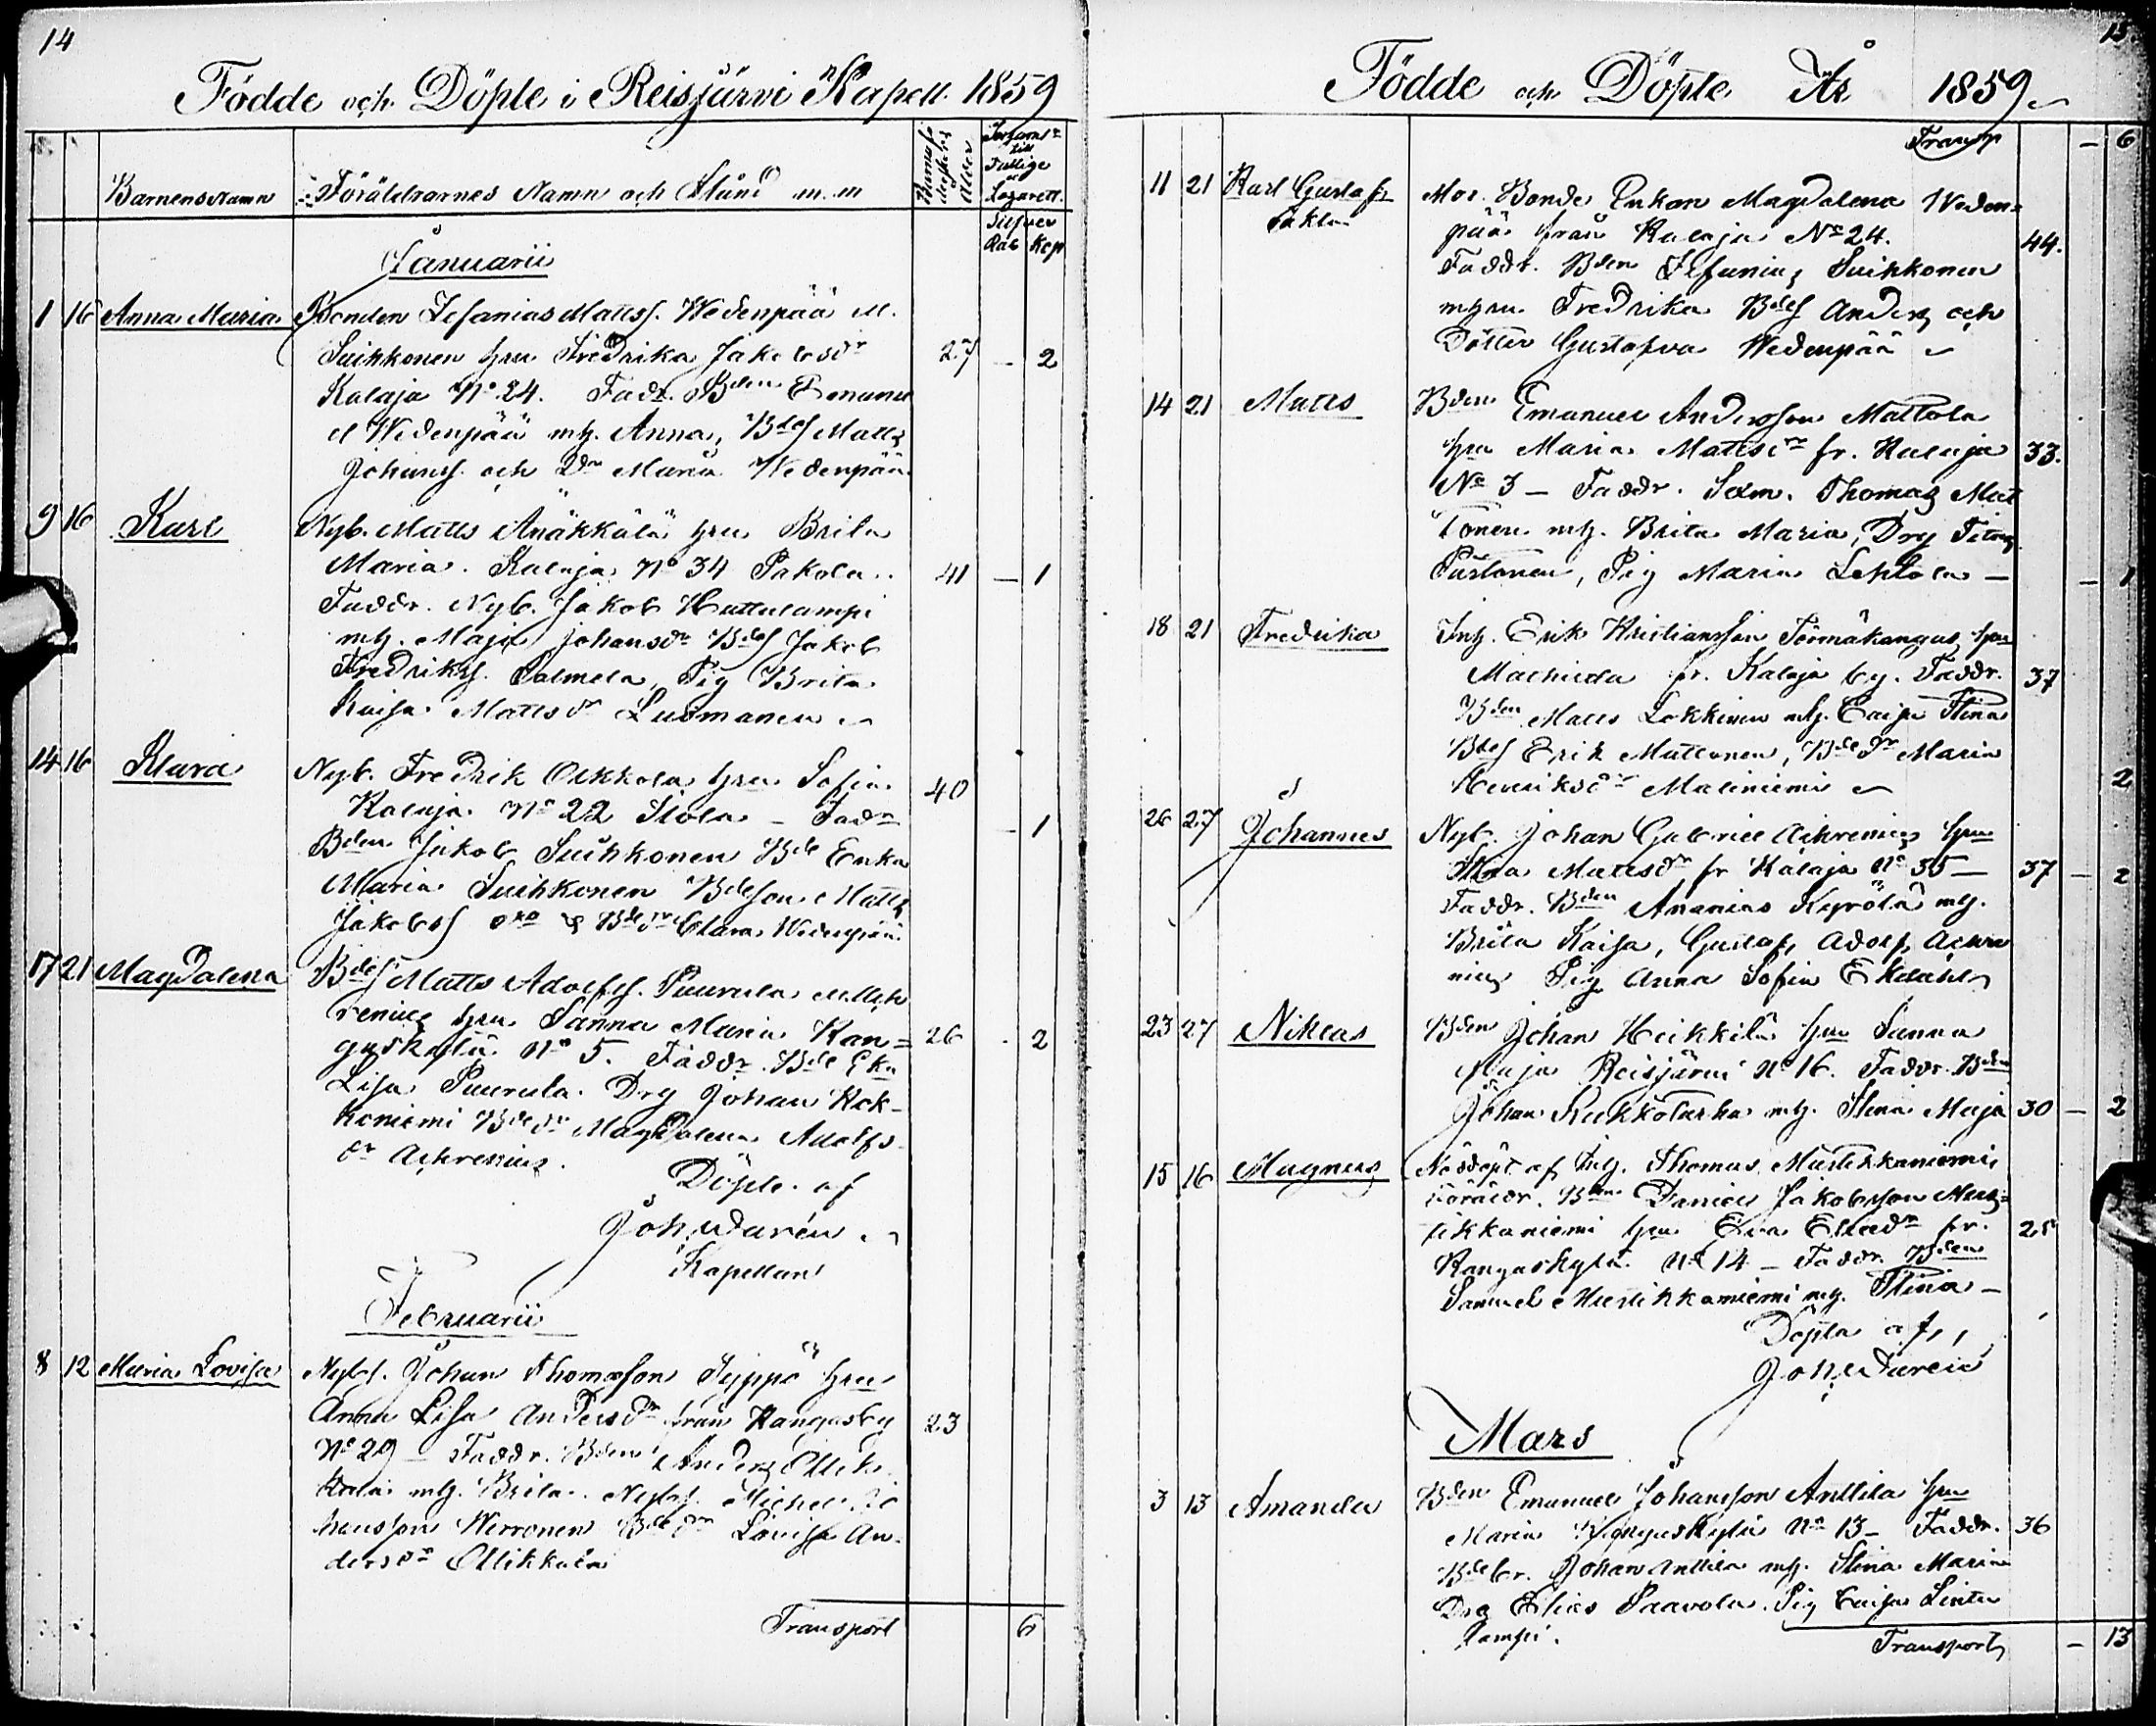 14
Födde och Döpte i Reisjärvi Kapell. 1859
Barnens Namn
Föräldrarnes Namn och Stånd m.m
Barnsäng Moderns Ålder
till Fattige Lazarett.
Silfver
Rub Kop
Januarii
1 16 Anna Maria Bonden Zefanias Mattss. Wedenpää M.
Suikkonen hru Fredrika Jakobsdr 27 – 2
Kalaja No 24. Fadr. Bden Emanu
el Wedenpää mh. Anna, Bdes Matts
Johanss. och Ddr Maria Wedenpää
9 16 Karl Nyb. Matts Anäkkälä hru Brita
Maria. Kalaja No 34 Pakola.. 41 – 1
Faddr. Nyb. Jakob Huttulampi
mh. Maja Johansdr Bdes Jakob
Fredrikss. Salmela, Pig Brita
Kaisa Mattsdr Luomanen
14 16 Klara Nyb. Fredrik Olkkola hru Sofia 40
Kalaja No 22 Isola – Fadr – 1
Bden Jakob Suikkonen Bde Enka
Maria Suikkonen Bdeson Matts
Jakobss och Bdedr Clara Wedenpää
17 21 Magdalena Bdes Matts Adolfss. Puurula Ach
renius hru Sanna Maria Kan= 26 2
gaskylä No 5. Faddr. Bde Eka
Lisa Puurula. Drg Johan Kok-
koniemi Bdedr Magdalena Adolfs
dr Achrenius.
Döpte af
Joh. Durén
Kapellan
Februarii
8 12 Maria Lovisa Nybs. Johan Thomasson Syppö hru
Anna Lisa Andersdr från Kangasby 23
No 29 – Faddr. Bden Anders Ollik
kala mh. Brita. Nybs. Michel Jo
hansson Werronen Bdedr Lovisa An-
dersdr Ollikkala
Transport 6
15
Födde och Döpte År 1859
Transp – 6
11 21 Karl Gustaf Mor. Bonde Enkan Magdalena Weden=
oäkta pää från Kalaja No 24. 44.
Faddr. Bden Zefanias Suikkonen
m hru Fredrika Bdes Anders och
Dotter Gustafva Wedenpää
14 21 Matts Bden Emanuel Andersson Mattola
hru Maria Mattsdr fr. Kalaja 33.
No 3 – Faddr. Sdm. Thomas Mat
tonen mh. Brita Maria, Drg Titus
Pustonen, Pig Maria Lehtola – – 1
18 21 Fredrika Inh. Erik Kristiansson Törmäkangas hru
Mathilda fr. Kalaja by. Faddr. 37
Bden Matts Lokkinen mh. Caisa Stina
Bdes Erik Mattonen, Bdedr Maria
Henriksdr Maliniemi 2
26 27 Johannes Nyb. Johan Gabriel Achrenius hru
Stina Mattsdr fr Kalaja No 35 – 37 – 2
Faddr. Bden Ananias Kyrölä mh.
Brita Kaisa, Gustaf Adolf Achre
nius Pig Anna Sofia Ekdahl
23 27 Niklas Bden Johan Heikkilä hru Sanna
Maja Reisjärvi No 16. Faddr. Bden
Johan Kukkotarha mh. Stina Maja 30 – 2
15 16 Magnus Nöddöpt af Inh. Thomas Mustikkaniemi
Föräldr. Bden Daniel Jakobsson Mus=
tikkaniemi hru Eva Eliedr fr. 25
Kangaskylä No 14 – Faddr. Bden
Samuel Mustikkaniemi mh. Stina –
Döpta af,,
Joh. Durén
Mars
3 13 Amanda Bden Emanuel Johansson Anttila hru
Maria Kangaskylä No 13 – Faddr. 36
Bdebr. Johan Anttila mh. Stina Maria
Drg Elias Paavola. Pig Caisa Lintu
lampi.
Transport – 13